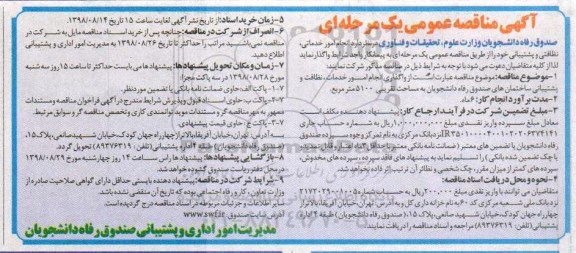 آگهی مناقصه عمومی یک مرحله ای
صندوق رفاه دانشجویان وزارت علوم، تحقیقات و فناوری در نظر دارد انجام امور خدماتی،
نظافتی و پشتیبانی خود را از طریق مناقصه عمومی یک مرحله ای به پیمانکار واجد شرایط واگذار نماید
لذا از کلیه متقاضیان دعوت می شود با توجه به شرایط ذیل در مناقصه مذکور شرکت نمایند.
۱-موضوع مناقصه: موضوع مناقصه عبارتست از واگذاری انجام امور خدمات، نظافت و
پشتیبانی ساختمان های صندوق رفاه دانشجویان به مساحت تقریبی ۵۱۰۰ متر مربع.
۲-مدت برآورد انجام کار: ۶ ماه
۳-مبلغ تضمین شرکت در فرآیند ارجاع کار:
رفاه دانشجویان یا تضمین های معتبر (ضمانت نامه بانکی
یا چک تضمین شده بانکی) را تسلیم نماید به پیشنهاد های فاقد سپرده، سپرده های مخدوش،
سپرده های کمتر از میزان مقرر، چک شخصی و نظایر آن ترتیب اثر داده نخواهد شد.
۴-نحوه و محل دریافت اسناد مناقصه:
متقاضیان می توانند با واریز نقدی مبلغ ۲۰۰/۰۰۰ ریال به حساب شماره
نزد بانک ملی شعبه مرکزی کد ۶۰ به نام خزانه داری کل و به آدرس تهران، خیابان آفریقا، بالاتر از
چهارراه جهان کودک، خیابان شهید صانعی، پلاک ۱۵، (صندوق رفاه دانشجویان) طبقه ۴ اداره
پشتیبانی (تلفن: ۸۹۳۷۶۳۱۹) مراجعه و اسناد مناقصه را دریافت نمایند.
۵-زمان خرید اسناد: از تاریخ نشر آگهی لغایت ساعت ۱۵ تاریخ ۱۳۹۸/۰۸/۱۴
۶-انصراف از شرکت در مناقصه: چنانچه پس از خرید اسناد مناقصه مایل به شرکت در
مناقصه نمی باشید مراتب را حداکثر تا تاریخ ۱۳۹۸/۰۸/۲۶ به مدیریت امور اداری و پشتیبانی
اطلاع دهید.
۷-زمان و مکان تحویل پیشنهادها: پیشنهادها می بایست حداکثر تا ساعت ۱۵ روز سه شنبه
مورخ ۱۳۹۸/۰۸/۲۸ در سه پاکت مجزا
۷-۱-پاکت الف: حاوی ضمانت نامه بانکی یا تضمین مورد نظر.
۷-۲-پاکت ب: حاوی اسناد قبول و پذیرش شرایط مندرج در آگهی فراخوان مناقصه و مستندات
ممهور به مهر مناقصه گر و مستندات موید توانمندی کاری و تخصص مناقصه گر و سوابق مرتبط.
۷-۳-پاکت ج: حاوی قیمت پیشنهادی
به آدرس تهران، خیابان آفریقا، بالاتر از چهارراه جهان کودک، خیابان شهید صانعی، پلاک ۱۵،
اداره پشتیبانی (تلفن: ۸۹۳۷۶۳۱۹) تحویل گردد.
۸-بازگشایی پیشنهادها: پیشنهاد ها راس ساعت ۱۴ روز چهارشنبه مورخ ۱۳۹۸/۰۸/۲۹
در محل دفتر ریاست صندوق گشوده خواهد شد.
۹-شرایط شرکت در مناقصه: پیشنهاد دهنده بایستی حداقل دارای گواهی صلاحیت صادره از
وزارت تعاون، کار و رفاه اجتماعی بوده که تاریخ آن منقضی نشده باشد.
سایر اطلاعات و جزئیات مربوطه در اسناد مناقصه درج گردیده است.
آدرس سایت صندوق: www.swf.ir
مدیریت امور اداری و پشتیبانی صندوق رفاه دانشجویان